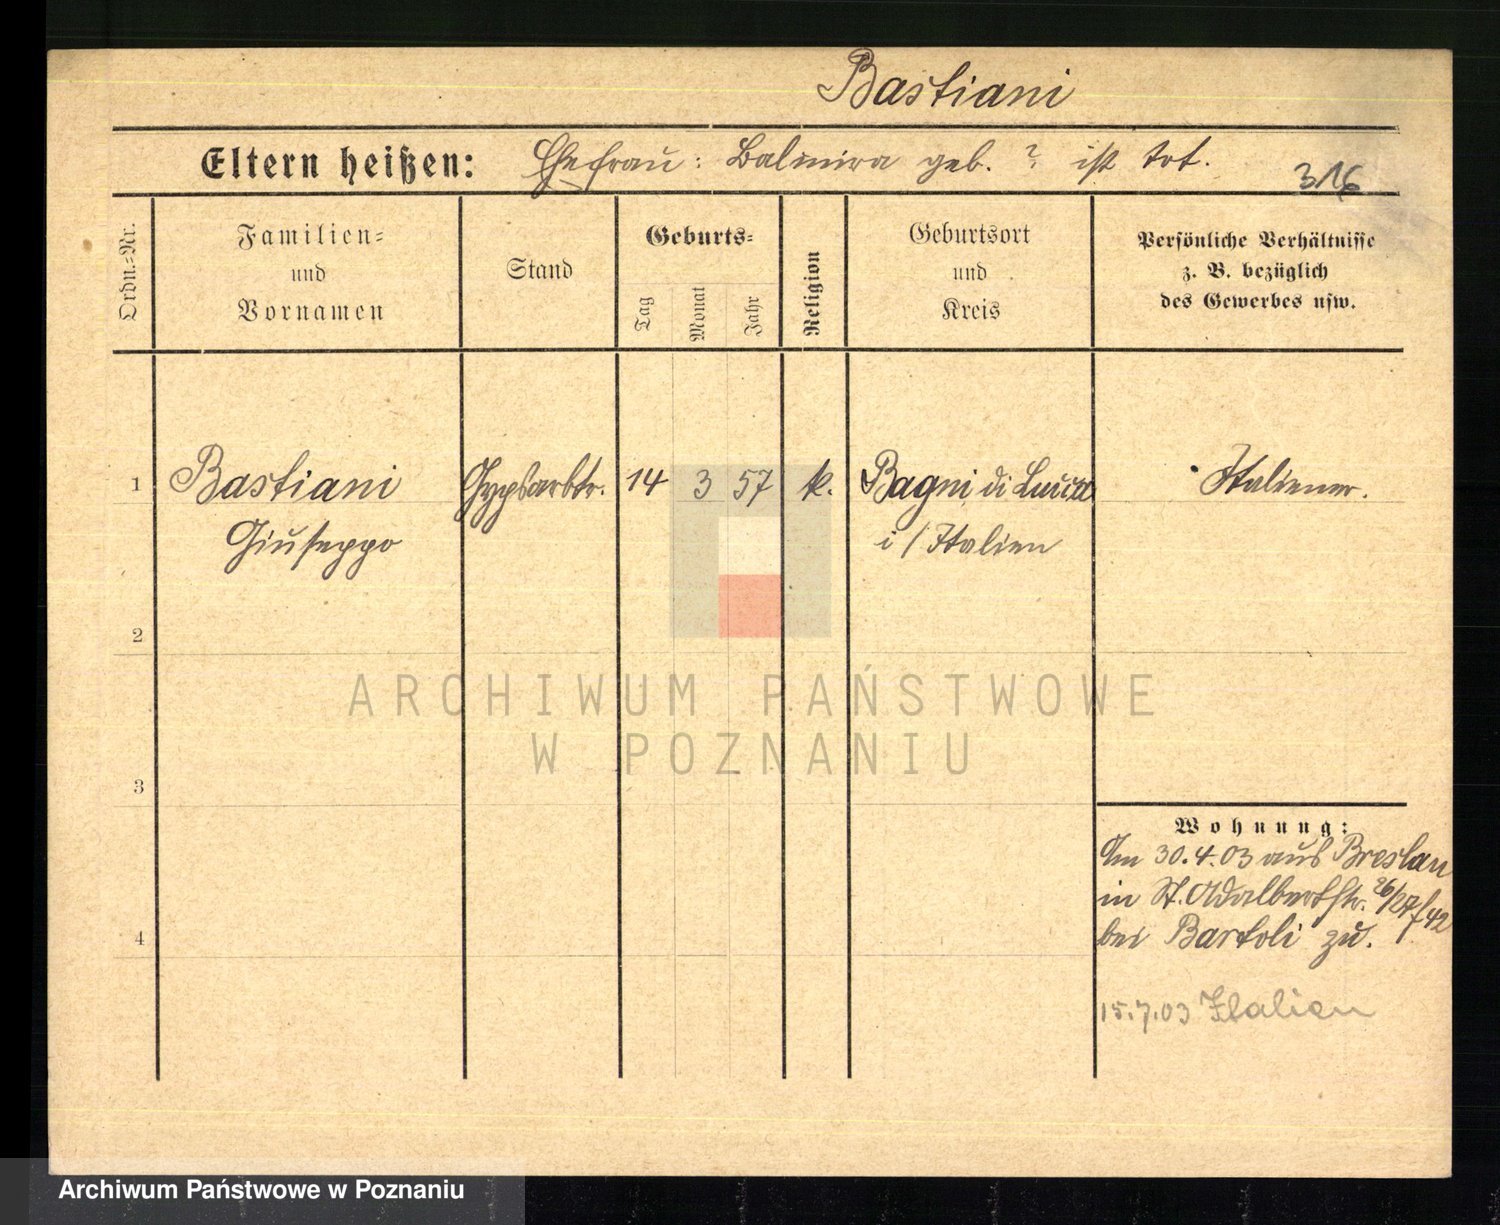 Bastiani
Eltern heißen: Ehefrau: Balmira geb. ? ist tot.
316
Ordn.-Nr.
Familien-
und
Vornamen
Stand
Geburts-
Tag
Monat
Jahr
Religion
Geburtsort
und
Kreis
Persönliche Verhältnisse
z. B. bezüglich
des Gewerbes usw.
1 Bastiani Gypsarbtr. 14 3 57 k. Bagni di Lucca Italiener.
Giuseppo i/Italien
2
3
4
ARCHIWUM PAŃSTWOWE
W POZNANIU
Wohnung:
Am 30.4.03 aus Breslau
in St. Adalbertstr. 26/27
bei Bartoli zu.
15.7.03 Italien
Archiwum Państwowe w Poznaniu